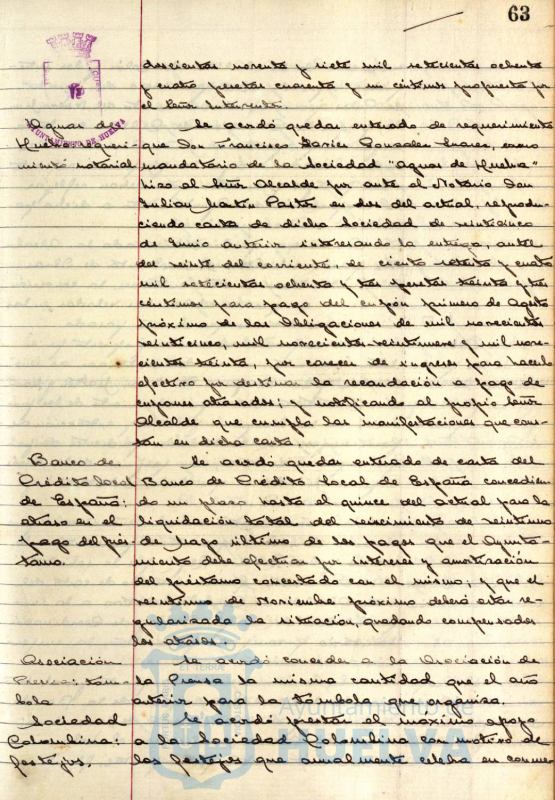 63
doscientas noventa y siete mil setecientas ochenta
y cuatro pesetas cuarenta y un céntimos propuesto por
el Señor Interventor.
AYUNTAMIENTO DE HUELVA
Aguas de
Huelva: requeri-
miento notarial
Se acordó quedar enterado de requerimiento
que Don Francisco Xavier Gonzalez Suarez, como
mandatario de la Sociedad "Aguas de Huelva"
hizo al Señor Alcalde por ante el Notario Don
Julian Martín Pastor en dos del actual, reprodu-
ciendo carta de dicha Sociedad de veinticinco
de Junio anterior interesando la entrega, antes
del veinte del corriente, de ciento setenta y cuatro
mil setecientas ochenta y tres pesetas treinta y tres
céntimos para pago del cupón primero de Agosto
próximo de las Obligaciones de mil novecientos
veinticinco, mil novecientos veintinueve y mil nove-
cientos treinta, por carecer de ingresos para hacerlo
efectivo por destinar la recaudación a pago de
cupones atrasados; y notificando al propio Señor
Alcalde que cumpla las manifestaciones que cons-
tan en dicha carta.
Banco de
Crédito Local
de España:
atraso en el
pago del prés-
tamo.
Se acordó quedar enterado de carta del
Banco de Crédito Local de España concedien-
do un plazo hasta el quince del actual para la
liquidación total del vencimiento de veintiuno
de Mayo último de los pagos que el Ayunta-
miento debe efectuar por intereses y amortización
del préstamo concertado con el mismo; y que el
veintiuno de Noviembre próximo deberá estar re-
gularizada la situación, quedando compensados
los atrasos.
Asociación
Prensa: tóm-
bola
Se acordó conceder a la Asociación de
la Prensa la misma cantidad que el año
anterior para la Tómbola que organiza.
Sociedad
Colombina:
festejos.
Se acordó prestar el máximo apoyo
a la Sociedad Colombina con motivo de
los festejos que anualmente celebra en conme-
Ayuntamiento de
HUELVA